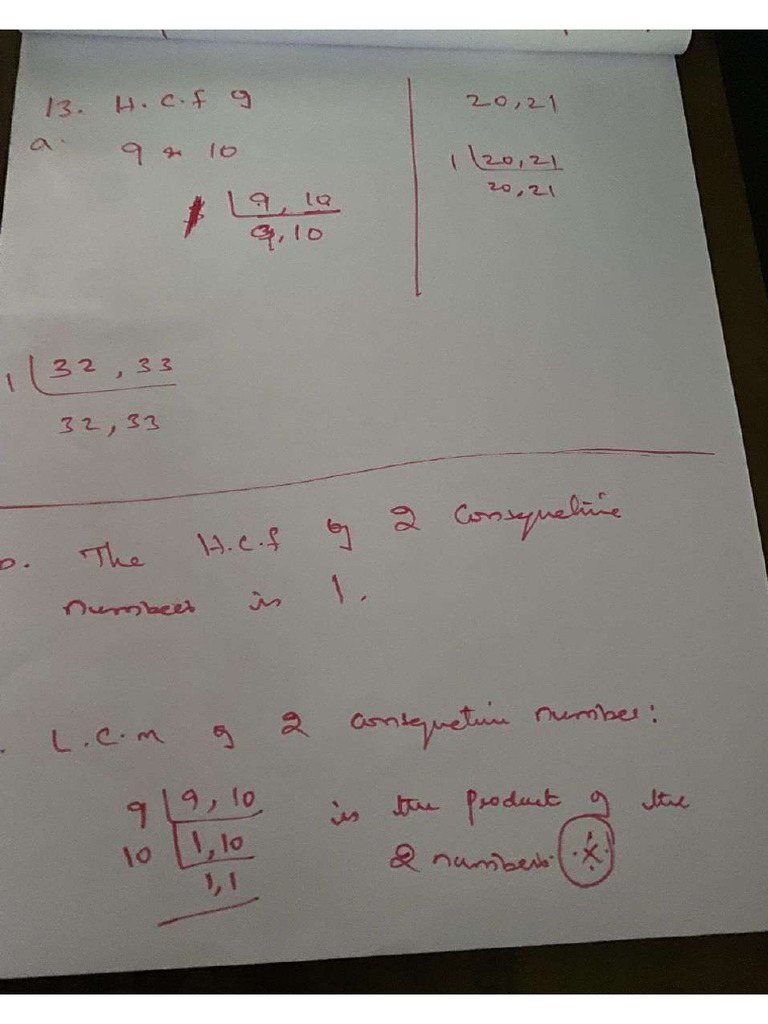 13. H.C.f of
a. 9 & 10
1 | 9, 10
9, 10
20, 21
1 | 20, 21
20, 21
1 | 32, 33
32, 33
b. The H.C.f of 2 Consequetive
numbers is 1.
. L.C.M of 2 consequetive number:
9 | 9, 10
10 | 1, 10
1, 1
is the product of the
2 numbers. x